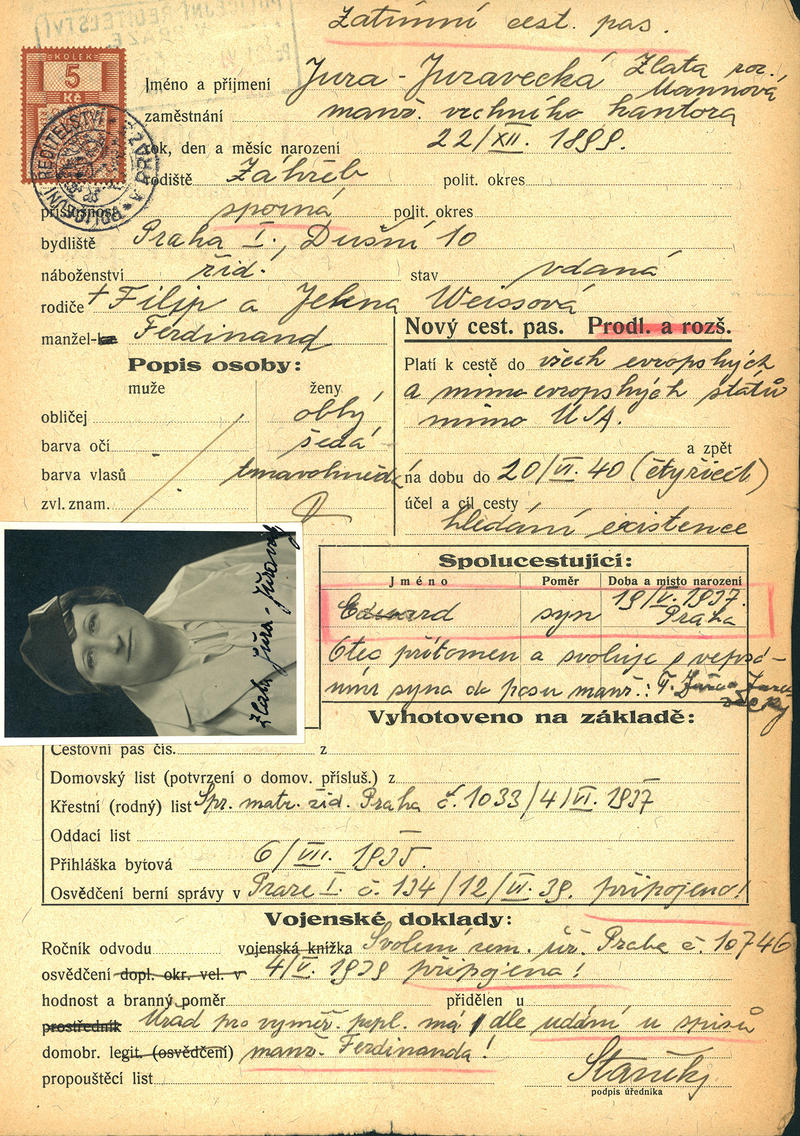 Zatímní cest. pas.
KOLEK
5
Kč
POLICEJNÍ ŘEDITELSTVÍ PRAHA
Jméno a příjmení Jura-Juravecká Zlata roz. Mannová
zaměstnání manž. vrchního kantora
rok, den a měsíc narození 22/XII. 1899.
rodiště Záhřeb polit. okres
příslušnost sporná polit. okres
bydliště Praha I., Dušní 10
náboženství žid. stav vdaná
rodiče +Filip a Jelena Weissová
manžel-ka Ferdinand
Nový cest. pas. Prodl. a rozš.
Popis osoby:
muže ženy
obličej oblý
barva očí šedá
barva vlasů tmavohnědá
zvl. znam.
Platí k cestě do všech evropských
a mimoevropských států
mimo USA.
a zpět
na dobu do 20/VI. 40 (čtyřicet)
účel a cíl cesty
hledání existence
Zlata Jura-Juravecká
Spolucestující:
Jméno Poměr Doba a místo narození
Eduard syn 19/V. 1937. Praha
Otec přítomen a svoluje s vepsá-
ním syna do pasu manž.: F.
Vyhotoveno na základě:
Cestovní pas čís. z
Domovský list (potvrzení o domov. přísluš.) z
Křestní (rodný) list Spr. matr. žid. Praha č. 1033/4/VI. 1937
Oddací list
Přihláška bytová 6/VII. 1935.
Osvědčení berní správy v Praze I. č. 134/12/VI. 39. připojeno!
Vojenské doklady:
Ročník odvodu vojenská knížka Svolení zem. úř. Praha č. 10746
osvědčení dopl. okr. vel. v 4/V. 1939 připojena!
hodnost a branný poměr přidělen u
prostředník Úřad pro vyměř. popl. má dle udání u spisů
domobr. legit. (osvědčení) manž. Ferdinanda!
propouštěcí list
podpis úředníka